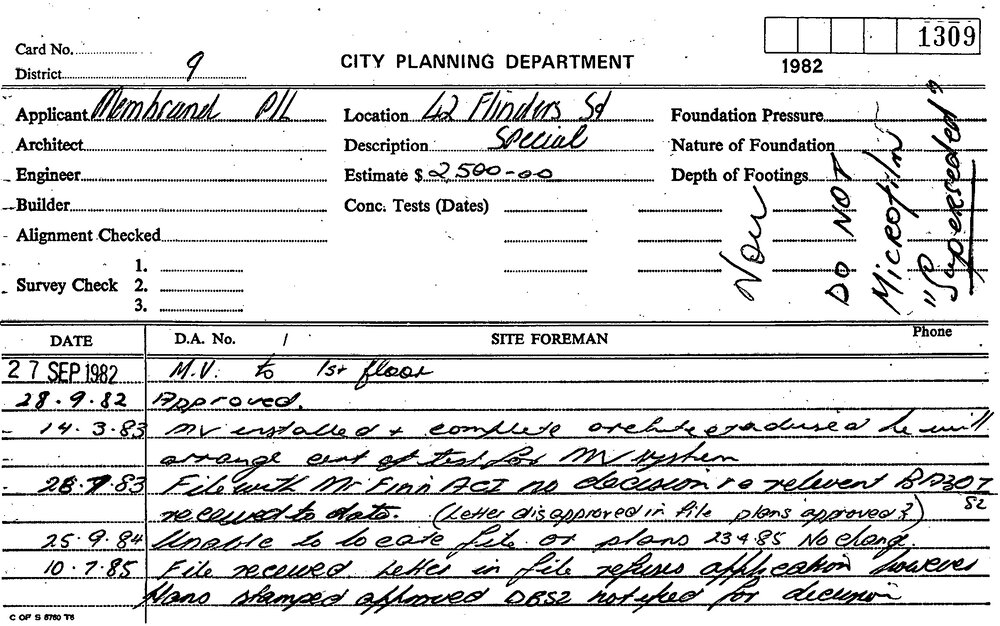 1309
Card No.
District 9
CITY PLANNING DEPARTMENT
1982
Applicant Membrand P/L
Location 42 Flinders St
Foundation Pressure
Architect
Description Special
Nature of Foundation
Engineer
Estimate $ 2,500-00
Depth of Footings
Builder
Conc. Tests (Dates)
Alignment Checked
Survey Check
1.
2.
3.
DO NOT
Microfilm
"Superseded"
DATE
D.A. No. /
SITE FOREMAN
Phone
27 SEP 1982 M.V. to 1st floor
28.9.82 Approved.
14.3.83 MV installed & complete advised he will
arrange cert of test for MV system
28.7.83 File with Mr Finn ACI no decision re relevent BA307
82
received to date. (Letter disapproved in file plans approved?)
25.9.84 Unable to locate file or plans 23 4 85 No change.
10.7.85 File received. Letter in file refuses application however
Plans stamped approved DBS2 notified for decision
C OF S 6760 T6